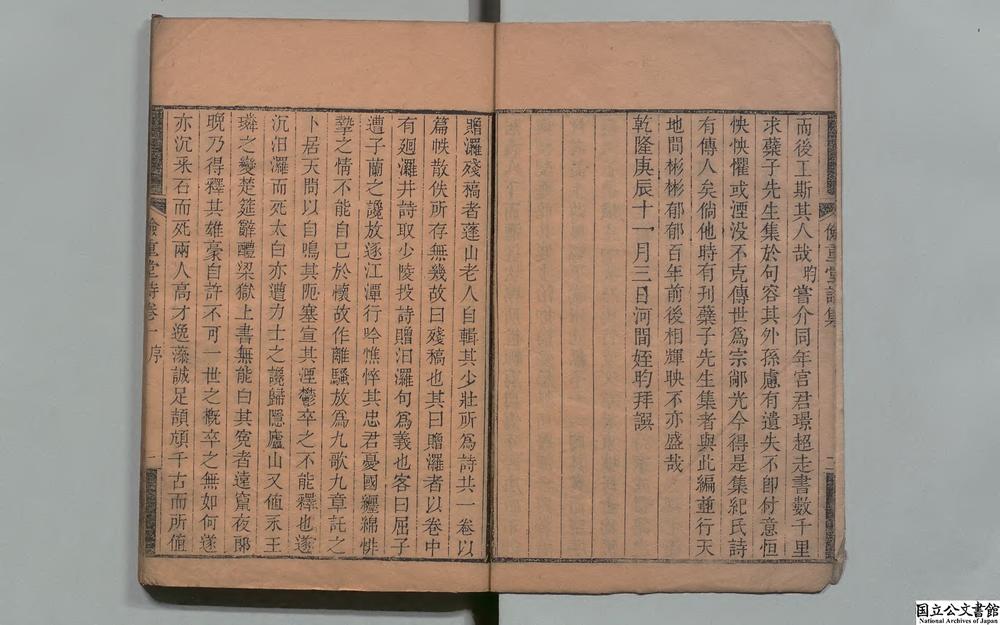 而後工斯其人哉昀嘗介同年宫君璟超走書數千里
求蘗子先生集於句容其外孫慮有遺失不卽付意恒
怏怏懼或湮没不克傳世爲宗鄗光今得是集紀氏詩
有傳人矣倘他時有刊蘗子先生集者與此編並行天
地間彬彬郁郁百年前後相輝映不亦盛哉
乾隆庚辰十一月三日河間姪昀拜譔
贈灑殘稿者蓬山老人自輯其少壯所爲詩共一卷以
篇帙散佚所存無幾故曰殘稿也其曰贈灑者以卷中
有廻灑井詩取少陵投詩贈汨灑句爲義也客曰屈子
遭子蘭之讒放逐江潭行吟憔悴其忠君憂國纒綿悱
摯之情不能自已於懷故作離騷放爲九歌九章託之
卜居天問以自鳴其阨塞宣其湮鬱卒之不能釋也遂
沉汨灑而死太白亦遭力士之讒歸隱廬山又値永王
璘之變楚筵辭醴梁獄上書無能白其寃者遠竄夜郎
晚乃得釋其雄豪自許不可一世之概卒之無如何遂
亦沉采石而死兩人高才逸藻誠足頡頏千古而所値
儉重堂詩卷一 序 一
儉重堂詩集 二
国立公文書館
National Archives of Japan